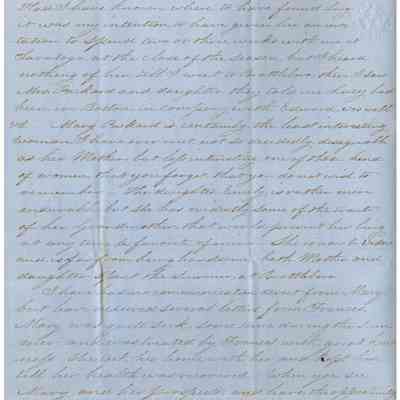 I have known where to have found her
it was my intention to have given her an invi-
tation to spend two or three weeks with me at
Saratoga at the close of the season, but I heard
nothing of her till I went to Brattleboro, then I saw
Mrs. Packard and daughter they told me Lucy had
been in Boston in company with Edward
Mary Packard is certainly the least interesting
woman I have ever met not so decidedly disagreeable
as her Mother but less interesting one of those kind
of women that you forget that you do not wish to
remember. The daughter Emily is rather more
endurable but she has evidently some of the traits
of her Grandmother that would prevent her long
at any time a favorite of mine. She
and is far from being handsome, both Mother and
daughter spent the summer at Brattleboro
I have had no communication direct from Mary
but have received several letters from Frances,
Mary was quite sick some time during the Sum-
mer and was treated by Frances with great kind-
ness She took her home with her and kept her
till her health was recovered. When you see
Mary and her prospects and have the opportunity